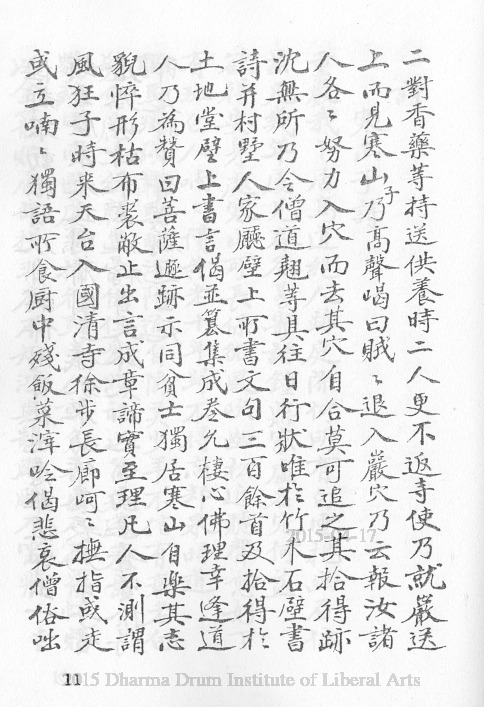 二對香藥等持送供養時二人更不返寺使乃就巖送
上而見寒山子乃高聲喝曰賊〻退入巖穴乃云報汝諸
人各〻努力入穴而去其穴自合莫可追之其拾得跡
沈無所乃令僧道翹等具往日行狀唯於竹木石壁書
詩并村墅人家廳壁上所書文句三百餘首及拾得於
土地堂壁上書言偈並纂集成卷允棲心佛理幸逢道
人乃為贊曰菩薩遯跡示同貧士獨居寒山自樂其志
貌悴形枯布裘敝止出言成章諦實至理凡人不測謂
風狂子時來天台入國清寺徐步長廊呵〻撫指或走
或立喃〻獨語所食厨中殘飯菜滓唫偈悲哀僧俗咄
11
2015-04-17
2015 Dharma Drum Institute of Liberal Arts